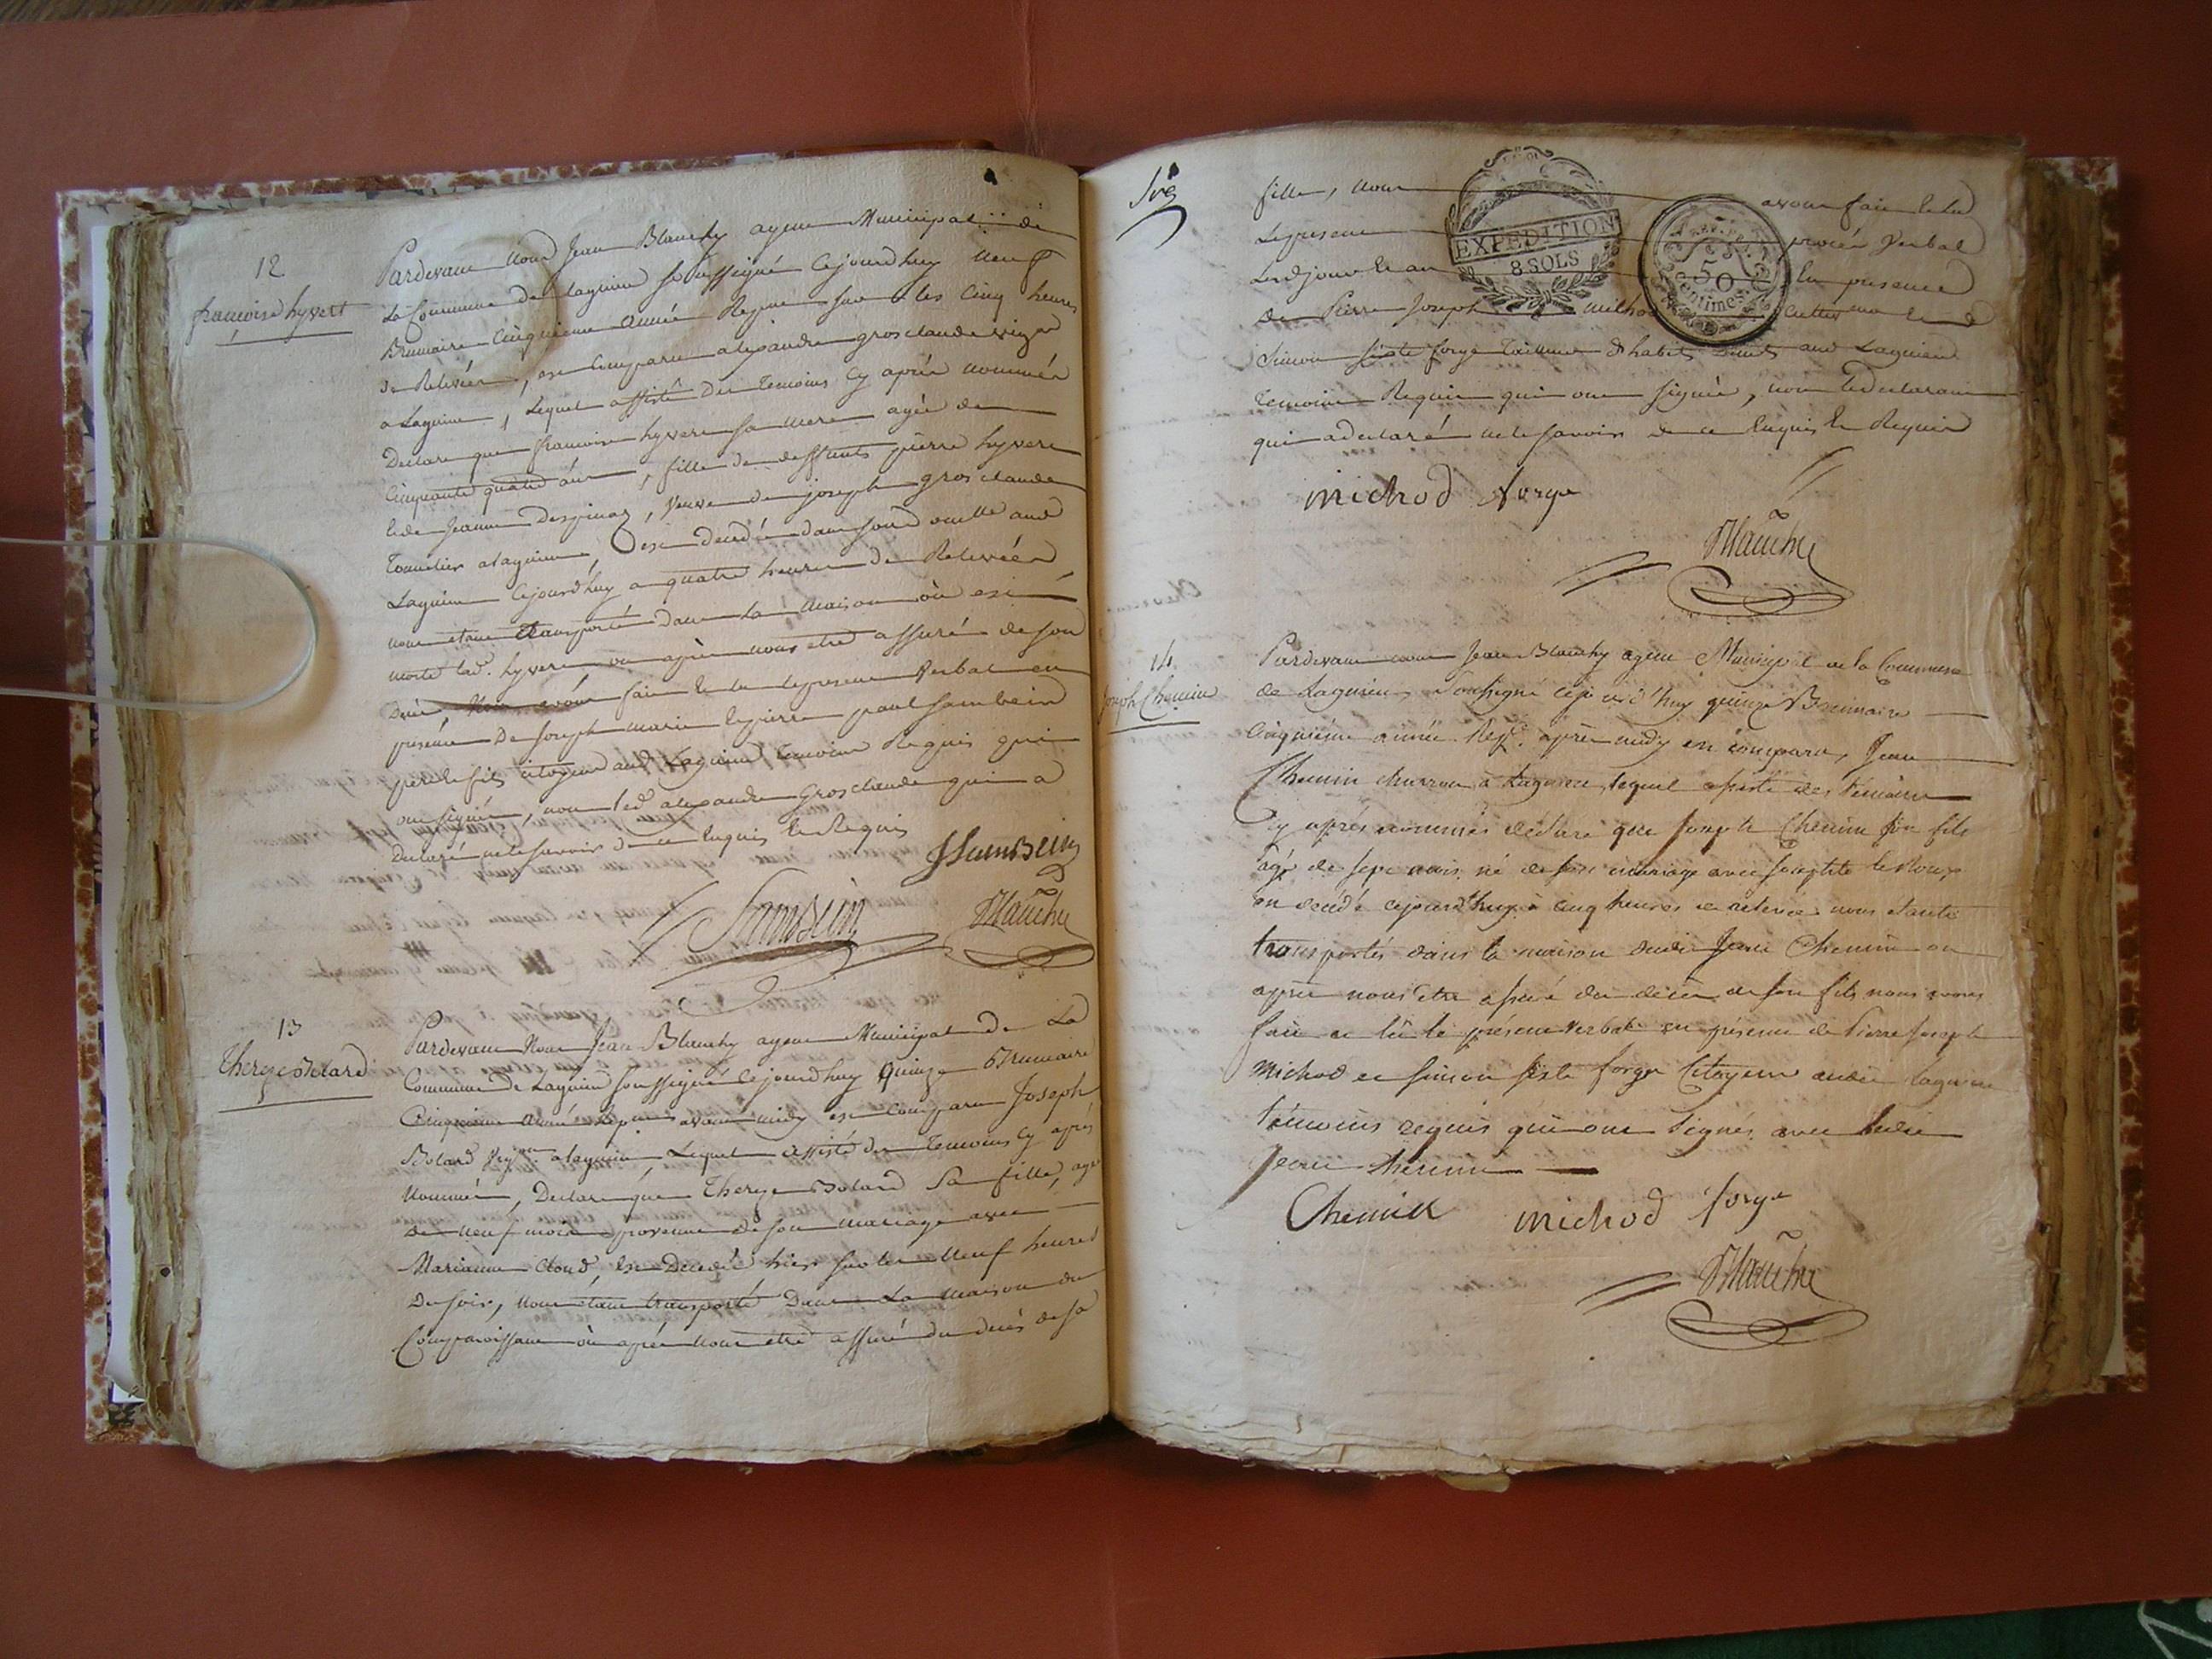 12
francoise hyvert
Pardevant Nous Jean Blanchy agent Municipal de
La Commune de lagnieu soussigné Cejourdhuy neuf
Brumaire Cinquieme année Repne sur les Cinq heures
de Relevées, est Comparu alexandre grosclaude
a Lagnieu, Lequel assisté des temoins Cy après nommés
Declare que francoise hyvert sa mere agée de
Cinquante quatre ans, fille de deffunts pierre hyvert
et de Jeanne Despinay, veuve de joseph grosclaude
Tonnelier a lagnieu, est decedée dans son
Lagnieu Cejourdhuy a quatre heures de Relevées
nous etant transporté dans la maison où est
morte lad. hyvert où après nous etre assuré de son
Decès, Nous avons fait et lu le present Verbal en
presence de Joseph marie et pierre paul sambein
pere et fils citoyens aud Lagnieu temoins Requis qui
ont signés, non led alexandre Grosclaude qui a
declaré ne le savoir de ce enquis et Requis
JSambein
Sambein Blanchy
13
Thereze Bolard
Pardevant Nous Jean Blanchy agent Municipal de La
Commune de Lagnieu soussigné Cejourdhuy quinze Brumaire
Cinquieme année Repne avant midy est Comparu Joseph
Bolard a lagnieu, Lequel assisté des temoins Cy après
Nommés, Declare que Thereze Bolard Sa fille, agée
de neuf mois provenue de son mariage avec
Marianne est Decedée hier sur les neuf heures
Du soir, nous etant transporté Dans La maison du
Comparoissant où après nous etre assuré du decès de sa
fille, nous avons fait et lu
Le present procés Verbal
Led jour et an En presence
de Pierre Joseph michod cultivateur et
Simon sixte forge Tailleur d'habits aud Lagnieu
temoins Requis qui ont signés, non le declarant
qui a declaré ne le savoir de ce Enquis et Requis
michod forge
Blanchy
14
joseph Chemin
Pardevant nous Jean Blanchy agent Municipal de la Commune
de Lagnieu, Soussigné cejourd'huy quinze Brumaire
Cinquième année Repe. après midy est comparu, Jean
Chemin charron à Lagnieu, lequel assisté des témoins
cy après nommés déclare que Joseph Chemin son fils
agé de sept mois né de son mariage avec
est decédé cejourd'huy à cinq heures de relevée nous etants
transportés dans la maison dudit Jean Chemin ou
après nous etre assuré du décès de son fils nous avons
fait et lû le présent Verbal en présence de Pierre Joseph
Michod et Simon sixte forge Citoyens audit lagnieu
témoins requis qui ont Signés avec ledit
Jean Chemin
Chemin michod forge
Blanchy
EXPEDITION
8 SOLS
REP. FRA.
50
Centimes